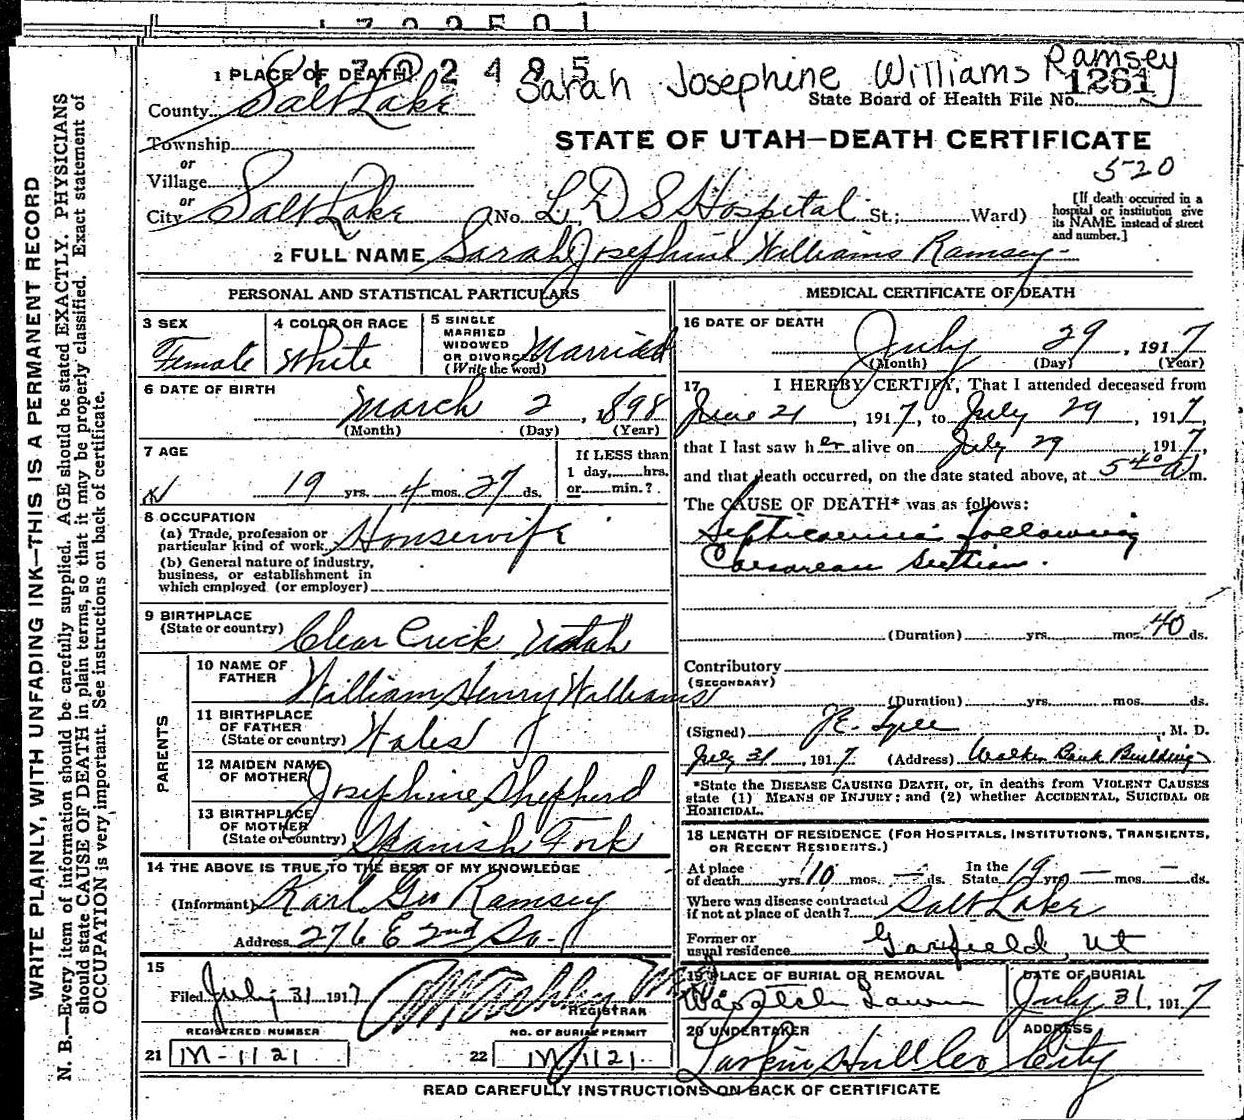 1 7 0 2 4 9 5
Sarah Josephine Williams Ramsey
1 PLACE OF DEATH
County Salt Lake
State Board of Health File No. 1261
Township
or
Village
or
City Salt Lake (No. L D S Hospital St.; Ward)
STATE OF UTAH—DEATH CERTIFICATE
520
[If death occurred in a
hospital or institution give
its NAME instead of street
and number.]
2 FULL NAME Sarah Josephine Williams Ramsey
PERSONAL AND STATISTICAL PARTICULARS
3 SEX
Female
4 COLOR OR RACE
White
5 SINGLE
MARRIED
WIDOWED
OR DIVORCED
(Write the word)
Married
6 DATE OF BIRTH
March 2, 1898
(Month) (Day) (Year)
7 AGE
19 yrs. 4 mos. 27 ds.
If LESS than
1 day, hrs.
or min.?
8 OCCUPATION
(a) Trade, profession or
particular kind of work Housewife
(b) General nature of industry,
business, or establishment in
which employed (or employer)
9 BIRTHPLACE
(State or country) Clear Creek Utah
PARENTS
10 NAME OF
FATHER William Henry Williams
11 BIRTHPLACE
OF FATHER
(State or country) Wales
12 MAIDEN NAME
OF MOTHER Josephine Shepherd
13 BIRTHPLACE
OF MOTHER
(State or country) Spanish Fork
14 THE ABOVE IS TRUE TO THE BEST OF MY KNOWLEDGE
(Informant) Karl Geo Ramsey
Address 276 E 2nd So.
15
Filed July 31 1917
REGISTRAR
REGISTERED NUMBER
21 M-1121
NO. OF BURIAL PERMIT
22 M 1121
MEDICAL CERTIFICATE OF DEATH
16 DATE OF DEATH
July 29, 1917
(Month) (Day) (Year)
17 I HEREBY CERTIFY, That I attended deceased from
June 21, 1917, to July 29, 1917,
that I last saw her alive on July 29 1917,
and that death occurred, on the date stated above, at 5 40 a m.
The CAUSE OF DEATH* was as follows:
Septicaemia following
Caesarean Section.
(Duration) yrs. mos. 40 ds.
Contributory
(SECONDARY)
(Duration) yrs. mos. ds.
(Signed) M. D.
July 31, 1917 (Address) Walker Bank Building
*State the DISEASE CAUSING DEATH, or, in deaths from VIOLENT CAUSES
state (1) MEANS OF INJURY; and (2) whether ACCIDENTAL, SUICIDAL OR
HOMICIDAL.
18 LENGTH OF RESIDENCE (FOR HOSPITALS, INSTITUTIONS, TRANSIENTS,
OR RECENT RESIDENTS.)
At place
of death yrs. 10 mos. — ds.
In the
State 19 yrs. — mos. — ds.
Where was disease contracted
if not at place of death? Salt Lake
Former or
usual residence Garfield, Ut
19 PLACE OF BURIAL OR REMOVAL
Wasatch Lawn
DATE OF BURIAL
July 31, 1917
20 UNDERTAKER
Larkin Hull Co
ADDRESS
City
READ CAREFULLY INSTRUCTIONS ON BACK OF CERTIFICATE
WRITE PLAINLY, WITH UNFADING INK—THIS IS A PERMANENT RECORD
N. B.—Every item of information should be carefully supplied. AGE should be stated EXACTLY. PHYSICIANS
should state CAUSE OF DEATH in plain terms, so that it may be properly classified. Exact statement of
OCCUPATION is very important. See instructions on back of certificate.